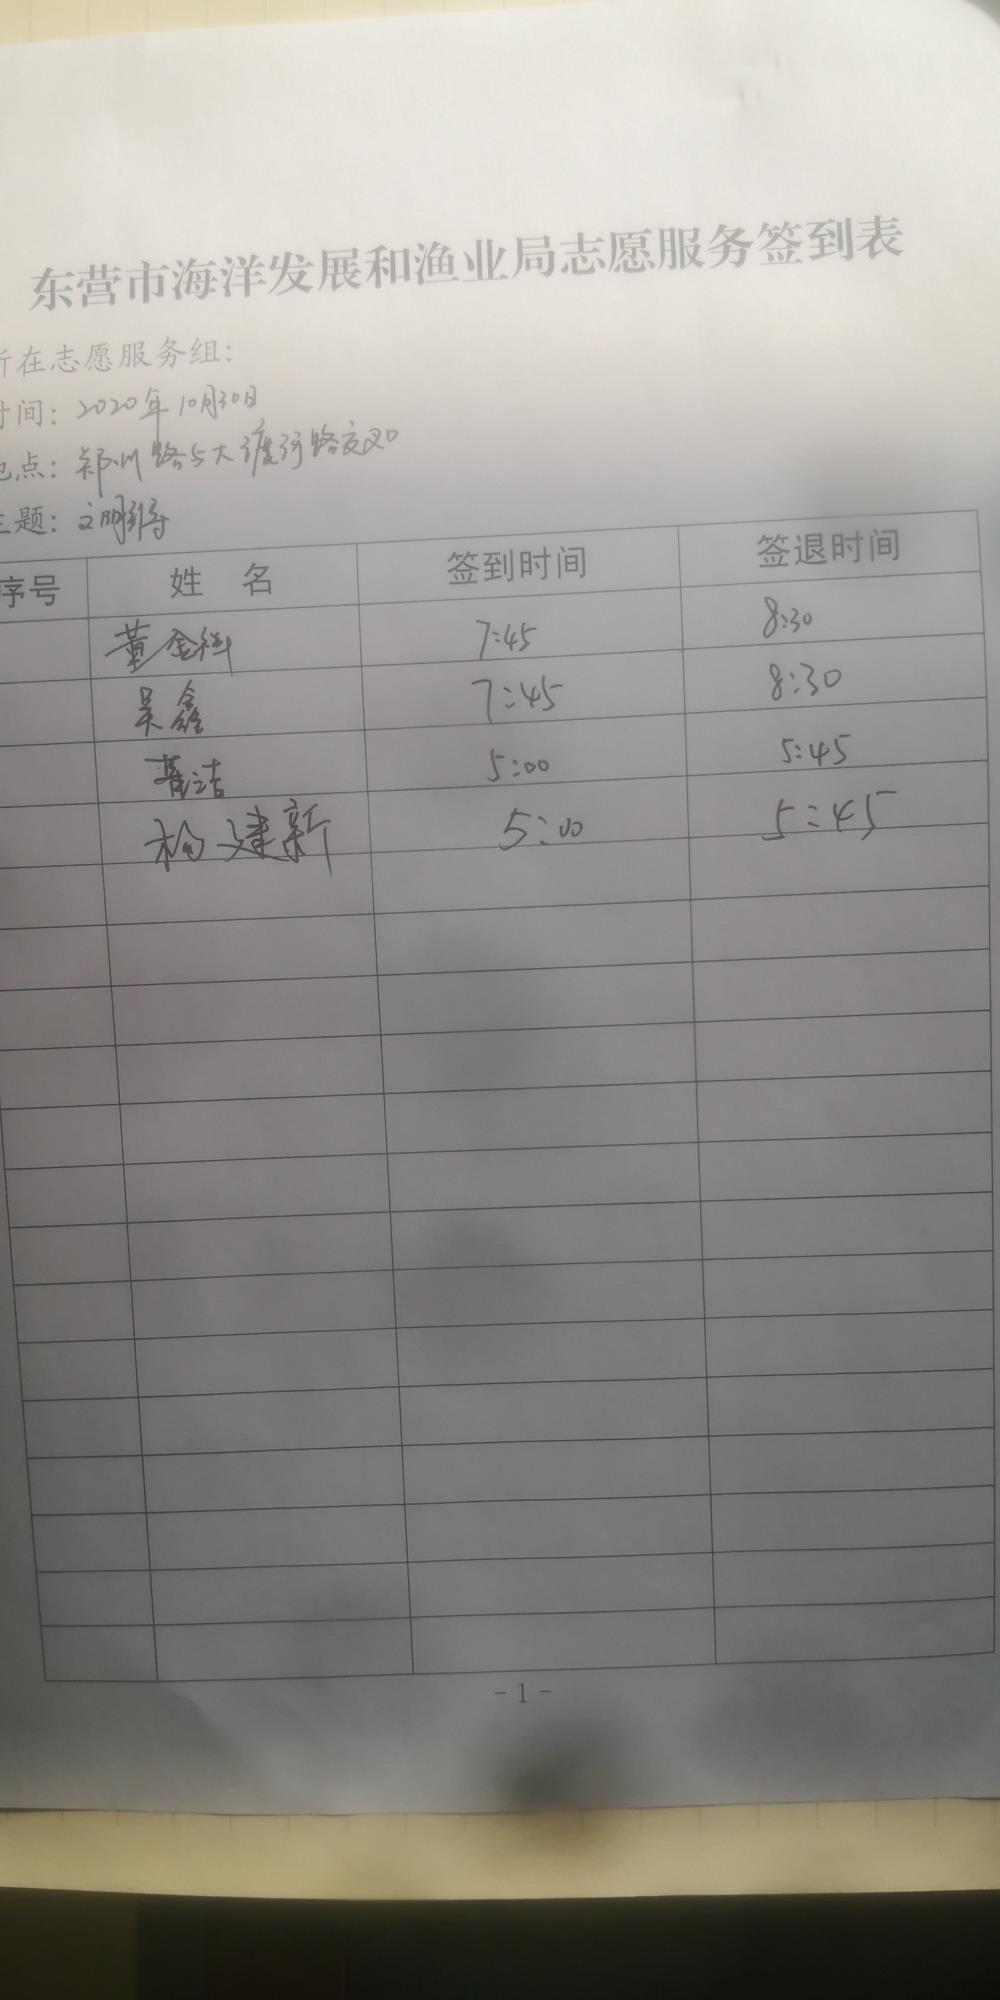 东营市海洋发展和渔业局志愿服务签到表
所在志愿服务组:
时间: 2020年10月30日
地点: 郑州路与大渡河路交叉口
主题: 文明引导
序号 姓 名 签到时间 签退时间
董金科 7:45 8:30
吴鑫 7:45 8:30
董洁 5:00 5:45
杨建新 5:00 5:45
- 1 -